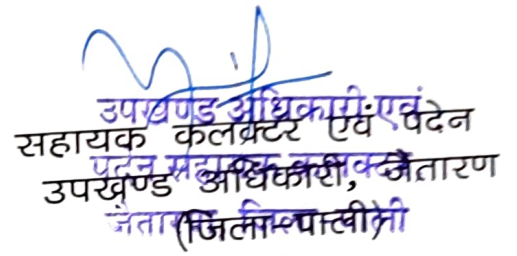 उपखण्ड अधिकारी एवं
सहायक कलक्टर एवं पदेन
पदेन सहायक कलक्टर
उपखण्ड अधिकारी, जैतारण
जैतारण
(जिला-पाली)